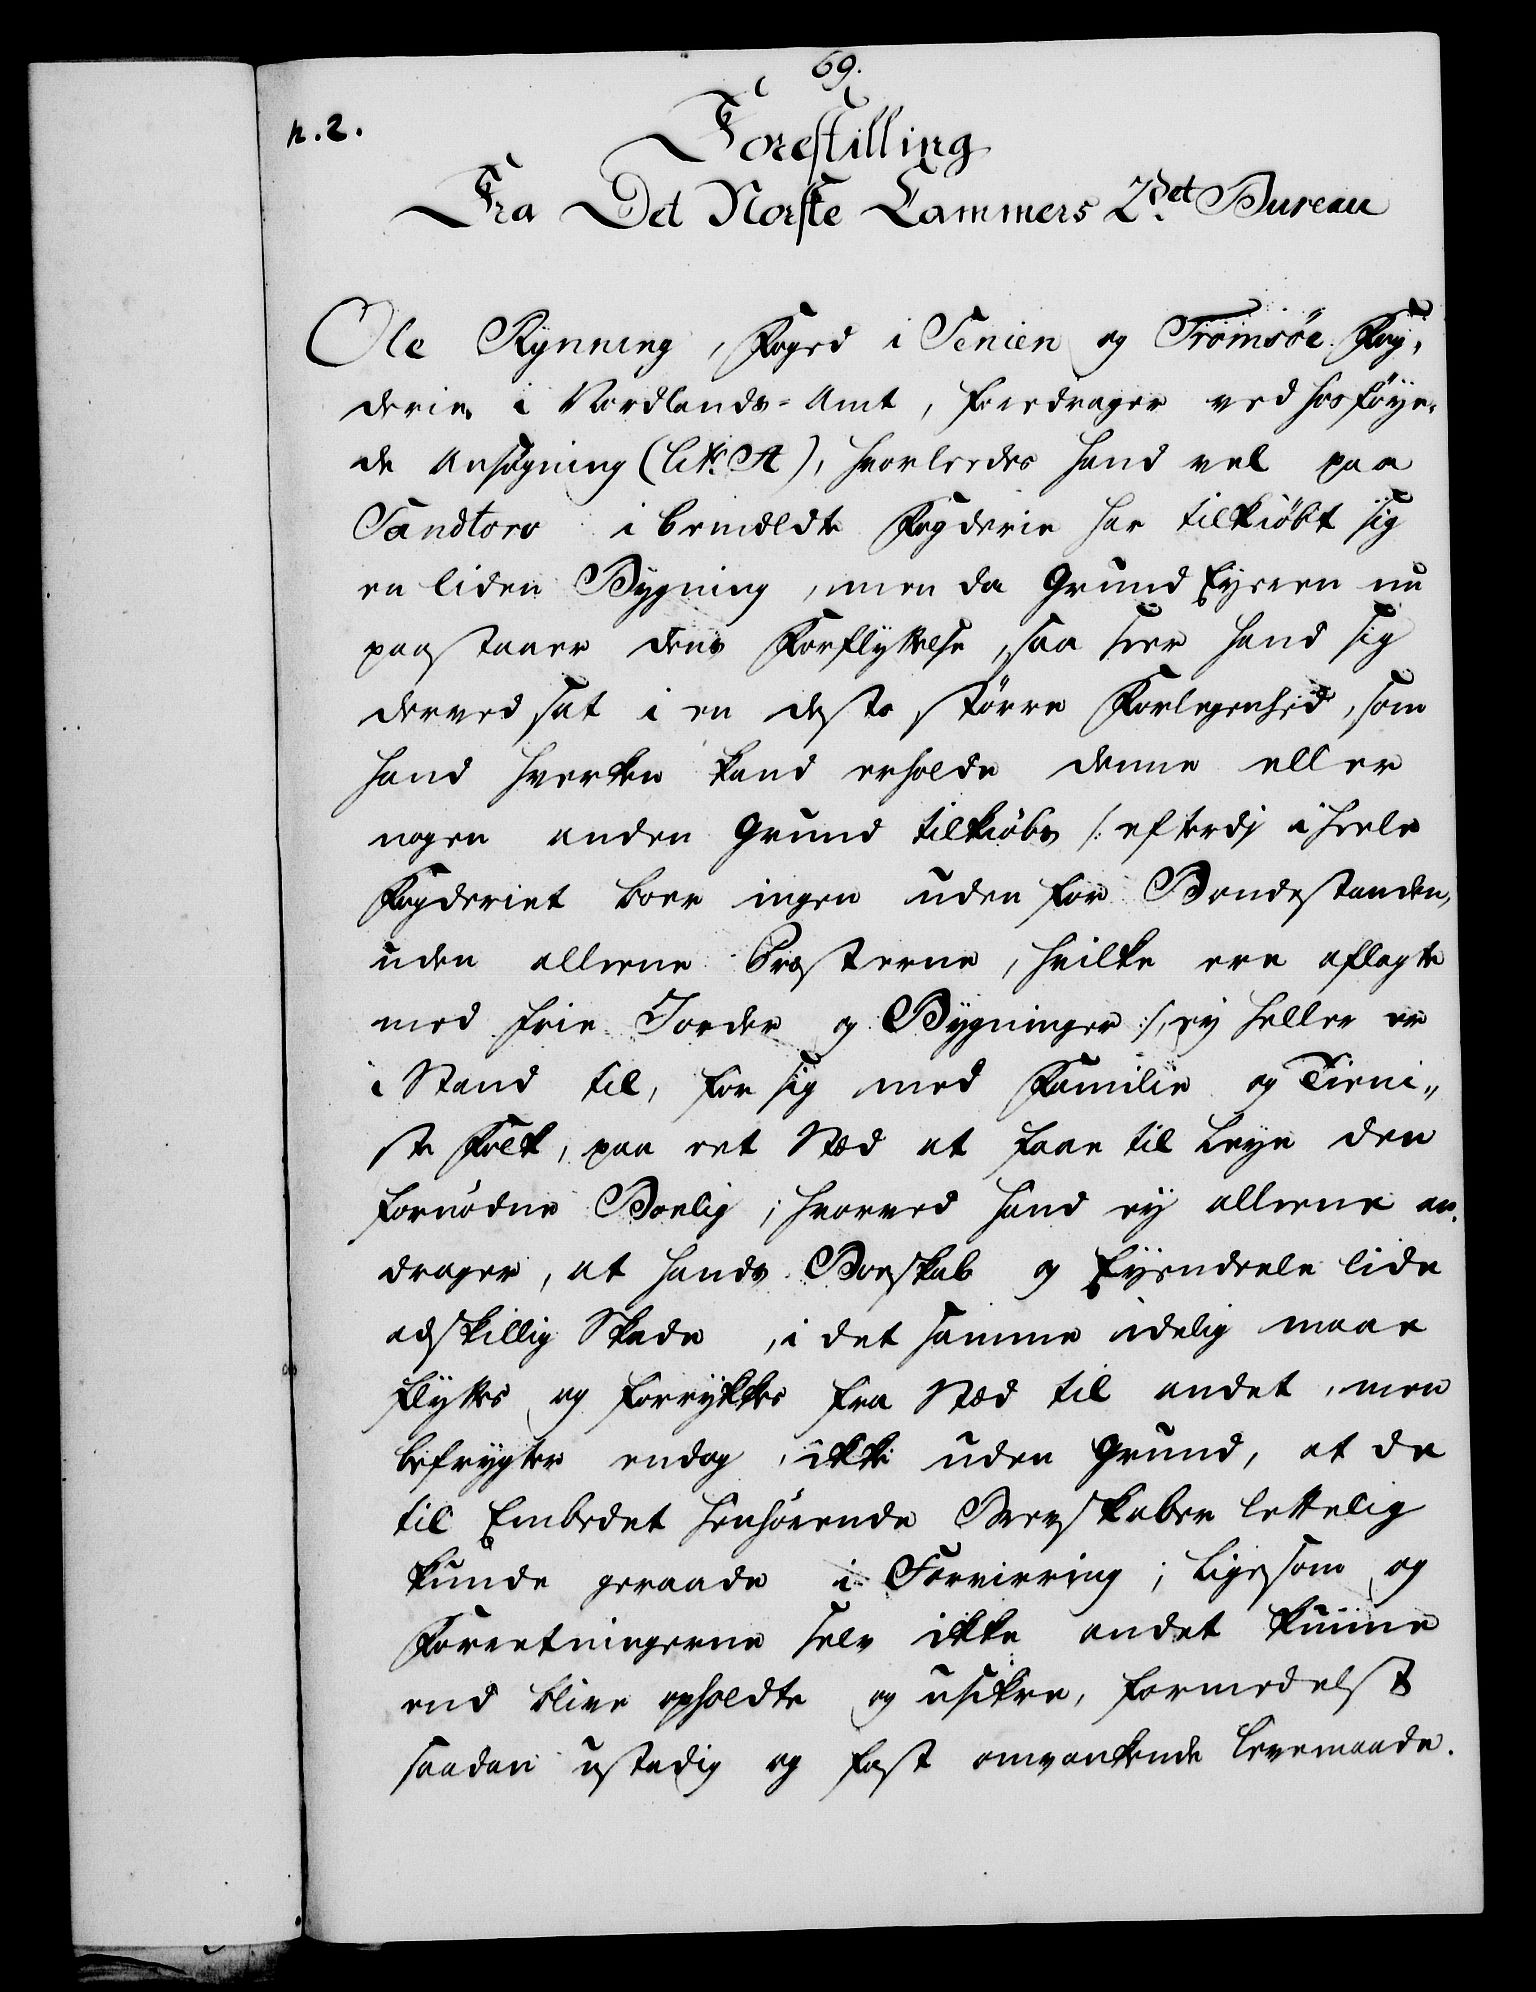 69.
n. 2.
Forestilling
Fra Det Norske Cammers 2det Bureau
Ole Rynning, Foged i Senien og Tromsöe Fog,
derie i Nordlands-Amt, foredrager ved hosföyen,
de Ansøgning (Litr. A), hvorledes hand vel paa
Sandtorv i bemældte Fogderie har tilkiöbt sig
en liden Bygning, men da Grund Eyeren nu
paastaaer dens Forflyttelse, saa seer hand sig
derved sat i en desto större Forlegenhed, som
hand hverken kand erholde denne eller
nogen anden Grund tilkiöbs /: efterdj i heele
Fogderiet boer ingen uden for Bondestanden,
uden alleene Præsterne, hvilke ere aflagte
med frie Jorder og Bygninger :/, ey heller er
i Stand til, for sig med Familie og Tieni„
ste Folk, paa eet Stæd at faae til Leye den
fornödne Boelig; hvorved hand ey alleene an,
drager, at hands Boeskab og Eyendeele lide
adskillig Skade, i det samme idelig maae
flyttes og forrykkes fra Stæd til andet, men
befrygter endog, ikke uden Grund, at de
til Embedet henhörende Brevskaber lettelig
kunde geraade i Forvirring; ligesom og
Forretningerne selv ikke andet kunne
end blive opholdte og usikre, formedelst
saadan ustadig og fast omvankende Levemaade.